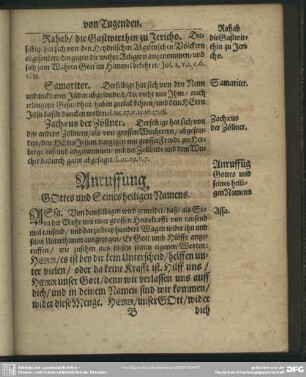 von Tugenden.
Rahab/ die Gastwirthin zu Jericho. Die-
selbige hat sich von den Heydnischen Abgöttischen Völckern
abgesondert/ dargegen die wahre Religion angenommen/ und
sich zum Wahren Gott im Himmel bekehret/ Jos. 2. v.1. c.6.
v.17.
Rahab
die Gastwir-
thin zu Jeri-
cho.
Samariter. Derselbige hat sich von den Neun
undanckbaren Jüden abgesondert/ die nicht mit Ihm/ nach
erlangter Gesundheit/ haben zurück kehren/ und dem HErrn
JEsu dafür dancken wollen/ Luc. 17. v.15. 16. 17. 18.
Samariter.
Zachæus der Zöllner. Derselbige hat sich von
den andern Zöllnern/ als von grossen Wucherern/ abgeson-
dert/ den HErrn JEsum dargegen mit grossen Freude zur Her-
berge auf und angenommen/ und der Sünde und dem Wu-
cher dadurch gantz abgesaget/ Luc. 19. v.7.
Zachæus
der Zöllner.
Anruffung
GOttes und Seines heiligen Namens.
Anruffug
Gottes und
seines heili-
gen Namens
ASsa. Von demselbigen wird gemeldet/ daß/ als Se-
ra der Mohr mit einer grossen Heerskrafft von tausend
mal tausend/ und darzu dreyhundert Wagen wider ihn und
seine Unterthanen außgezogen/ Er Gott umb Hülffe ange-
ruffen/ wie zusehen aus diesen seinen eigenen Worten:
HErr/ es ist bey dir kein Unterscheid/ helffen un-
ter vielen/ oder da keine Krafft ist. Hilff uns/
HErr unser Gott/ denn wir verlassen uns auff
dich/ und in deinem Namen sind wir kommen/
wider diese Menge. HErr/ unser GOtt/ wider
Assa.
B
dich